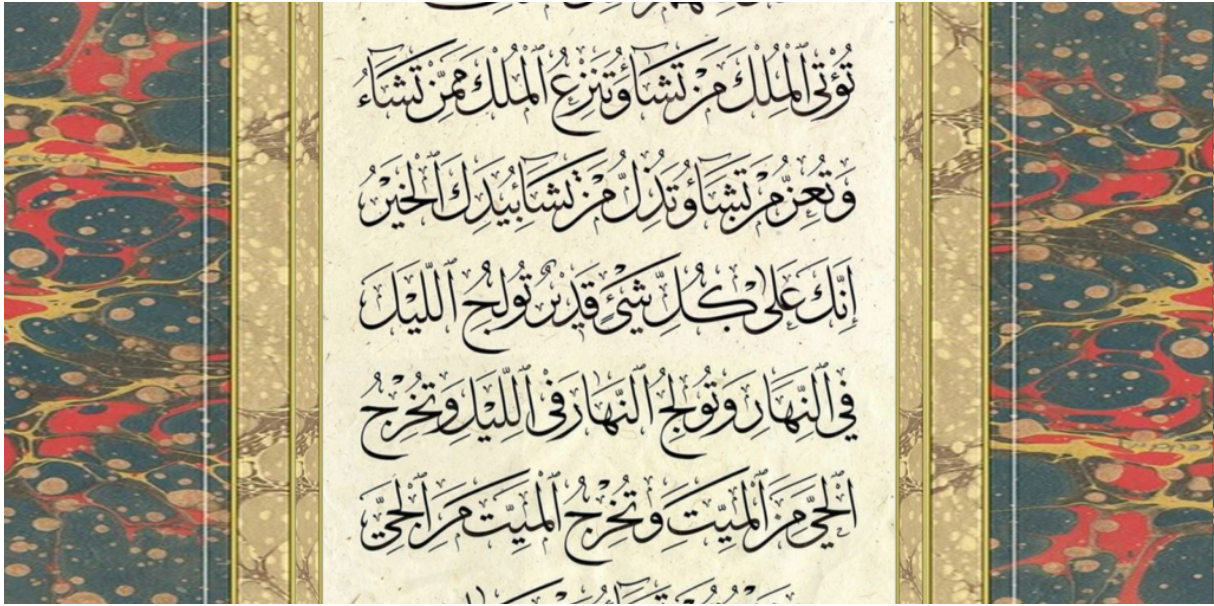 تُؤْتِى الْمُلْكَ مَنْ تَشَاءُ وَتَنْزِعُ الْمُلْكَ مِمَّنْ تَشَاءُ
وَتُعِزُّ مَنْ تَشَاءُ وَتُذِلُّ مَنْ تَشَاءُ بِيَدِكَ الْخَيْرُ
اِنَّكَ عَلٰى كُلِّ شَىْءٍ قَدِيرٌ تُولِجُ الَّيْلَ
فِى النَّهَارِ وَتُولِجُ النَّهَارَ فِى الَّيْلِ وَتُخْرِجُ
الْحَىَّ مِنَ الْمَيِّتِ وَتُخْرِجُ الْمَيِّتَ مِنَ الْحَىِّ